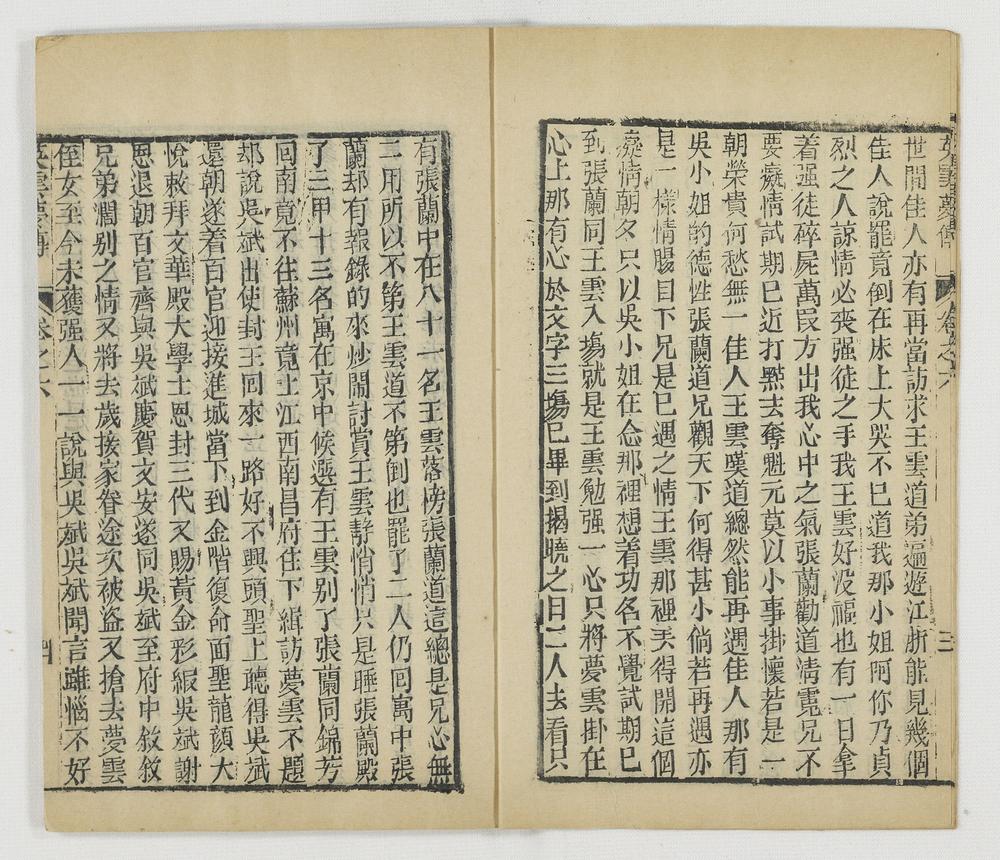 英雲夢傳 卷之六 三
世間佳人亦有再當訪求王雲道弟遍遊江浙能見幾個
佳人說罷竟倒在床上大哭不已道我那小姐阿你乃貞
烈之人諒情必喪强徒之手我王雲好没福也有一日拿
着强徒碎屍萬叚方出我心中之氣張蘭勸道清霓兄不
要癡情試期已近打㸃去奪魁元莫以小事掛懷若是一
朝榮貴何愁無一佳人王雲嘆道總然能再遇佳人那有
吳小姐的德性張蘭道兄觀天下何得甚小倘若再遇亦
是一樣情腸目下兄是巳遇之情王雲那裡丟得開這個
癡情朝夕只以吳小姐在念那裡想着功名不覺試期巳
到張蘭同王雲入塲就是王雲勉强一心只將夢雲掛在
心上那有心於文字三塲巳畢到揭曉之日二人去看只
有張蘭中在八十一名王雲落榜張蘭道這總是兄心無
二用所以不第王雲道不第倒也罷了二人仍回寓中張
蘭却有報錄的來炒鬧討賞王雲静悄悄只是睡張蘭殿
了三甲十三名寓在京中候選有王雲别了張蘭同錦芳
回南竟不往蘇州竟上江西南昌府住下緝訪夢雲不題
却說吳斌出使封王回來一路好不興頭聖上聽得吳斌
還朝遂着百官迎接進城當下到金階復命面聖龍顔大
悅敕拜文華殿大學士恩封三代又賜黃金彩緞吳斌謝
恩退朝百官齊與吳斌慶賀文安遂同吳斌至府中敘敘
兄弟濶别之情又將去歲接家眷途次被盗又搶去夢雲
侄女至今未獲强人一一說與吳斌吳斌聞言雖惱不好
英雲夢傳 卷之六 四